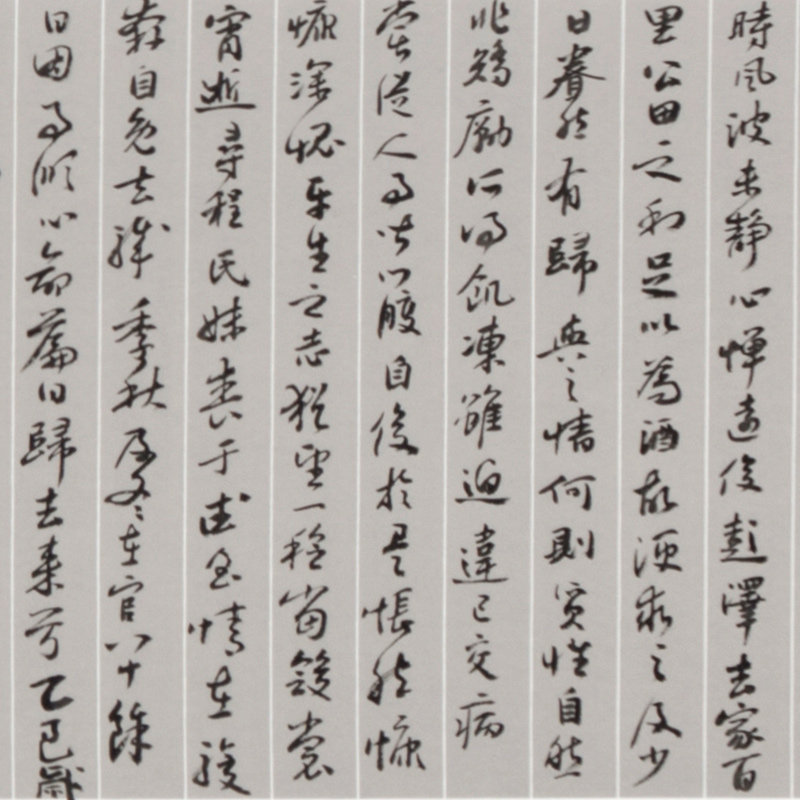 時風波未靜心憚遠役彭澤去家百
里公田之利足以為酒故便求之及少
日眷然有歸與之情何則質性自然
非矯勵所得飢凍雖迫違己交病
嘗從人事皆口腹自役於是悵然慷
慨深愧平生之志猶望一稔當斂裳
宵逝尋程氏妹喪于武昌情在駿
奔自免去職季秋及冬在官八十餘
日因事順心命篇曰歸去來兮乙巳歲